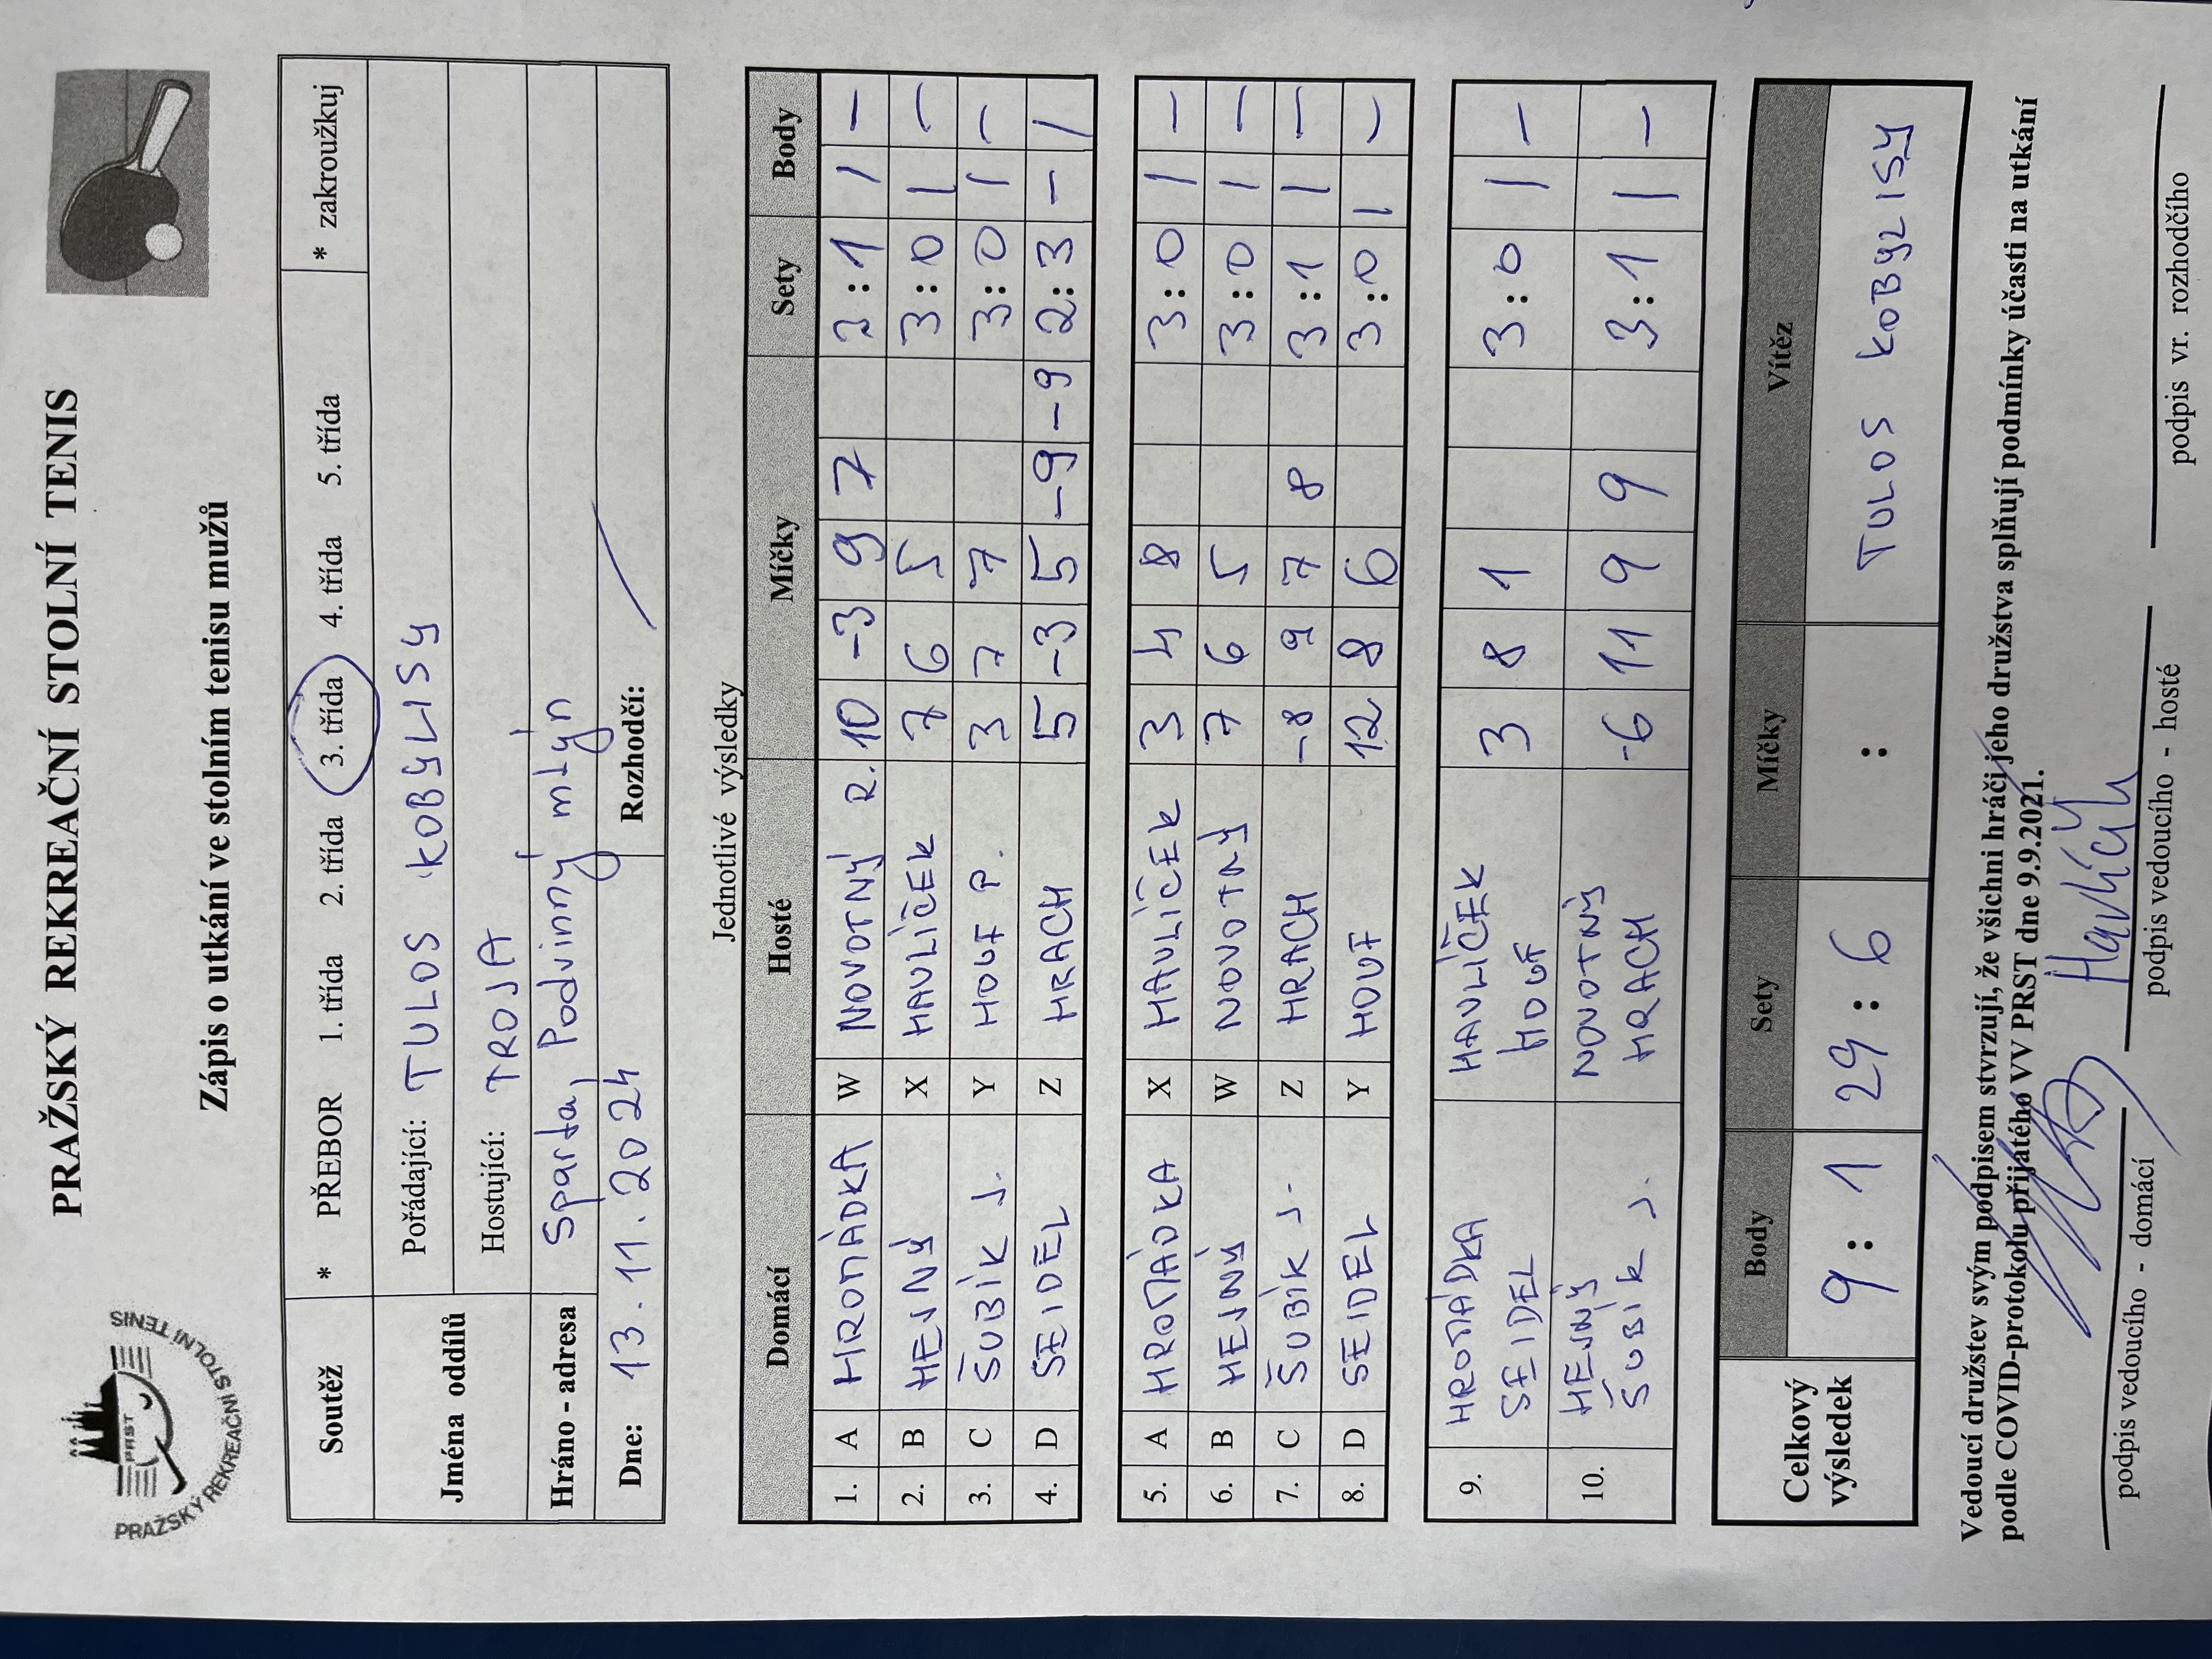 PRAŽSKÝ REKREAČNÍ STOLNÍ TENIS
PRST
PRAŽSKÝ REKREAČNÍ STOLNÍ TENIS
Zápis o utkání ve stolním tenisu mužů
Soutěž * PŘEBOR 1. třída 2. třída 3. třída 4. třída 5. třída * zakroužkuj
Jména oddílů Pořádající: TULOS KOBYLISY
Hostující: TROJA
Hráno - adresa Sparta, Podvinný mlýn
Dne: 13.11.2024 Rozhodčí: /
Jednotlivé výsledky
Domácí Hosté Míčky Sety Body
1. A HROMÁDKA W NOVOTNÝ R. 10 -3 9 7 3:1 1 -
2. B HEJNÝ X HAVLÍČEK 7 6 5 3:0 1 -
3. C ŠUBÍK J. Y HOUF P. 3 7 7 3:0 1 -
4. D SEIDEL Z HRACH 5 -3 5 -9 -9 2:3 - 1
5. A HROMÁDKA X HAVLÍČEK 3 4 8 3:0 1 -
6. B HEJNÝ W NOVOTNÝ 7 6 5 3:0 1 -
7. C ŠUBÍK J. Z HRACH -8 9 7 8 3:1 1 -
8. D SEIDEL Y HOUF 12 8 6 3:0 1 -
9. HROMÁDKA HAVLÍČEK 3 8 1 3:0 1 -
SEIDEL HOUF
10. HEJNÝ NOVOTNÝ -6 11 9 9 3:1 1 -
ŠUBÍK J. HRACH
Celkový výsledek Body Sety Míčky Vítěz
9:1 29:6 : TULOS KOBYLISY
Vedoucí družstev svým podpisem stvrzují, že všichni hráči jeho družstva splňují podmínky účasti na utkání
podle COVID-protokolu přijatého VV PRST dne 9.9.2021.
Havlíček
podpis vedoucího - domácí podpis vedoucího - hosté podpis vr. rozhodčího